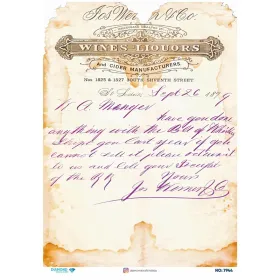 Jos Werner & Co.
WINES LIQUORS
And CIDER MANUFACTURERS
Nos. 1525 & 1527 SOUTH SEVENTH STREET
St Louis, Sept 26 1899
W A Manger
Have you done
anything with the Bill of Whisky
Shipd you last year if you
cannot sell it please return it
to us and let your
of the RR Yours
Jos Werner & Co
NO: 7964